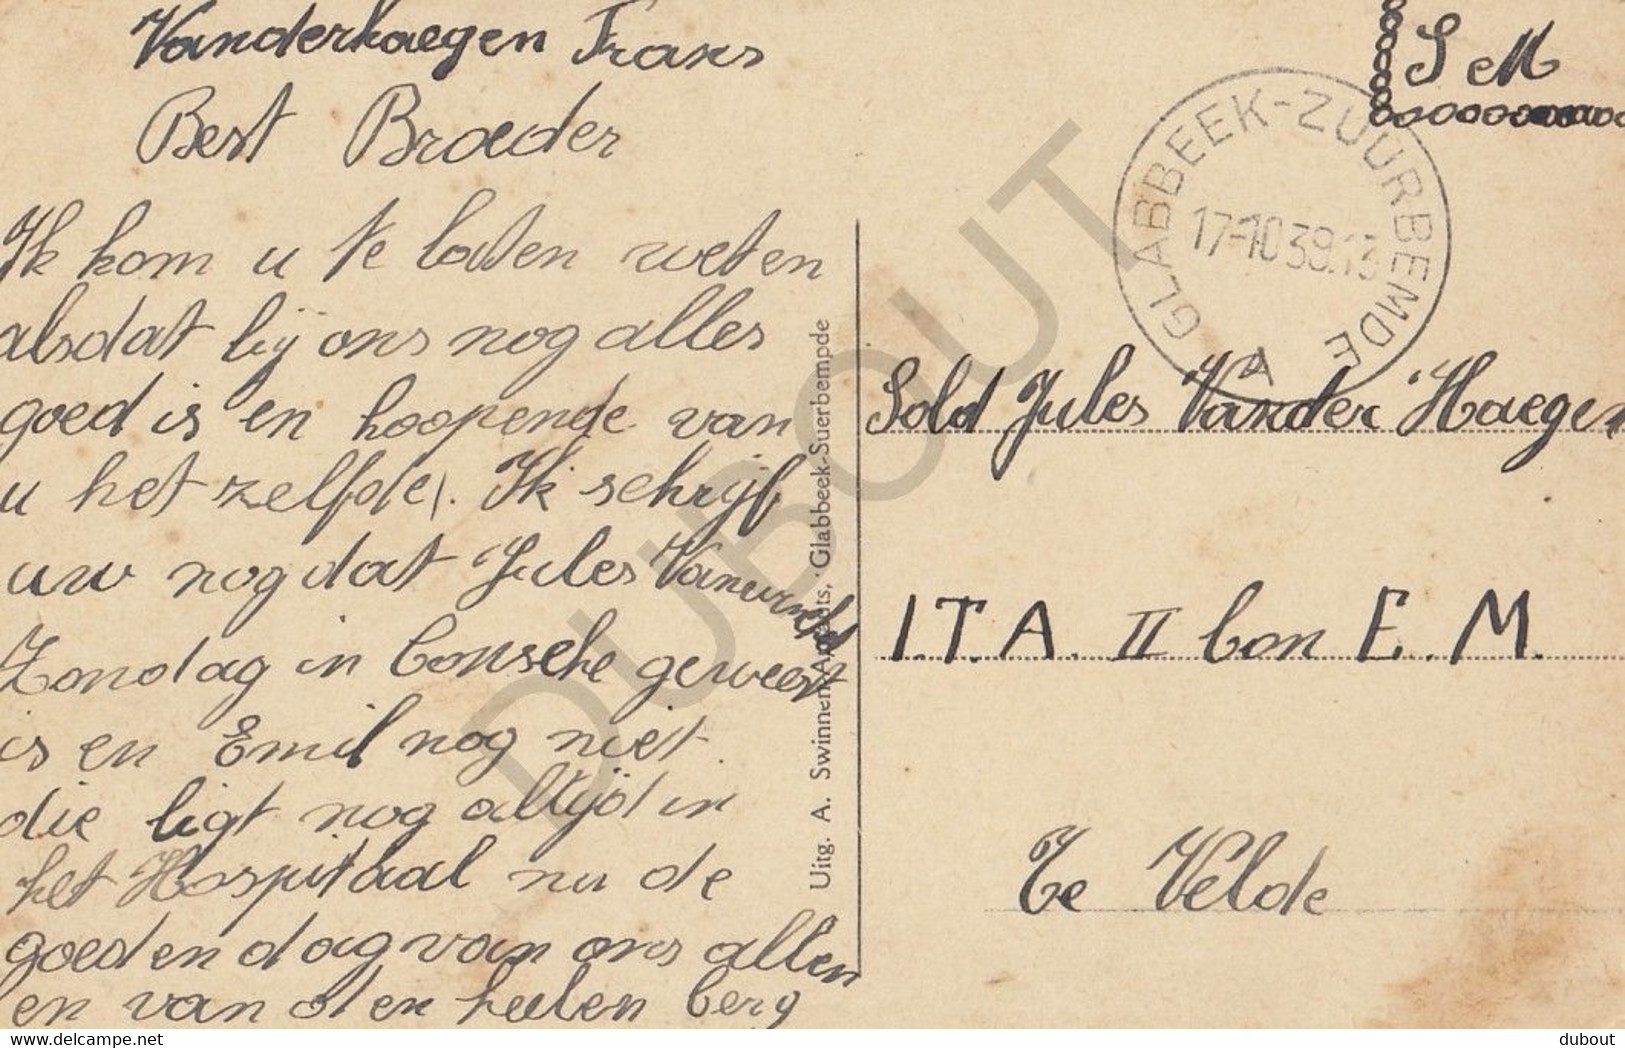 Vanderhaegen Frans
Best Broeder
Ik kom u te laten weten
alsdat bij ons nog alles
goed is en hoopende van
u het zelfde. Ik schrijf
uw nog dat Jules
Zondag in geweest
is en Emil nog niet.
die ligt nog altijd in
het Hospitaal nu de
goeden dag van ons allen
en van den heelen berg
Uitg. A. Swinnen-Aerts, Glabbeek-Suerbempde
S M
GLABBEEK-ZUURBEMDE
17-10 39.13
A
Sold Jules Vander Haegen
I.T.A. II bon E.M.
Te Velde
DUBOUT
www.delcampe.net
dubout